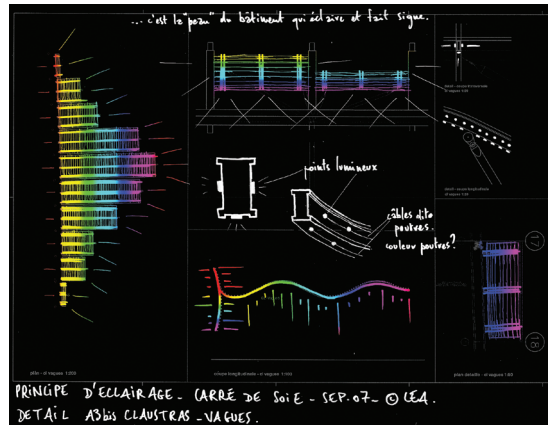 ... c'est la "peau" du bâtiment qui éclaire et fait signe.
points lumineux
câbles dito
poutres.
couleur poutres?
17
18
PRINCIPE D'ECLAIRAGE - CARRÉ DE SOIE - SEP. 07 - © LEA.
DETAIL A3bis CLAUSTRAS - VAGUES.